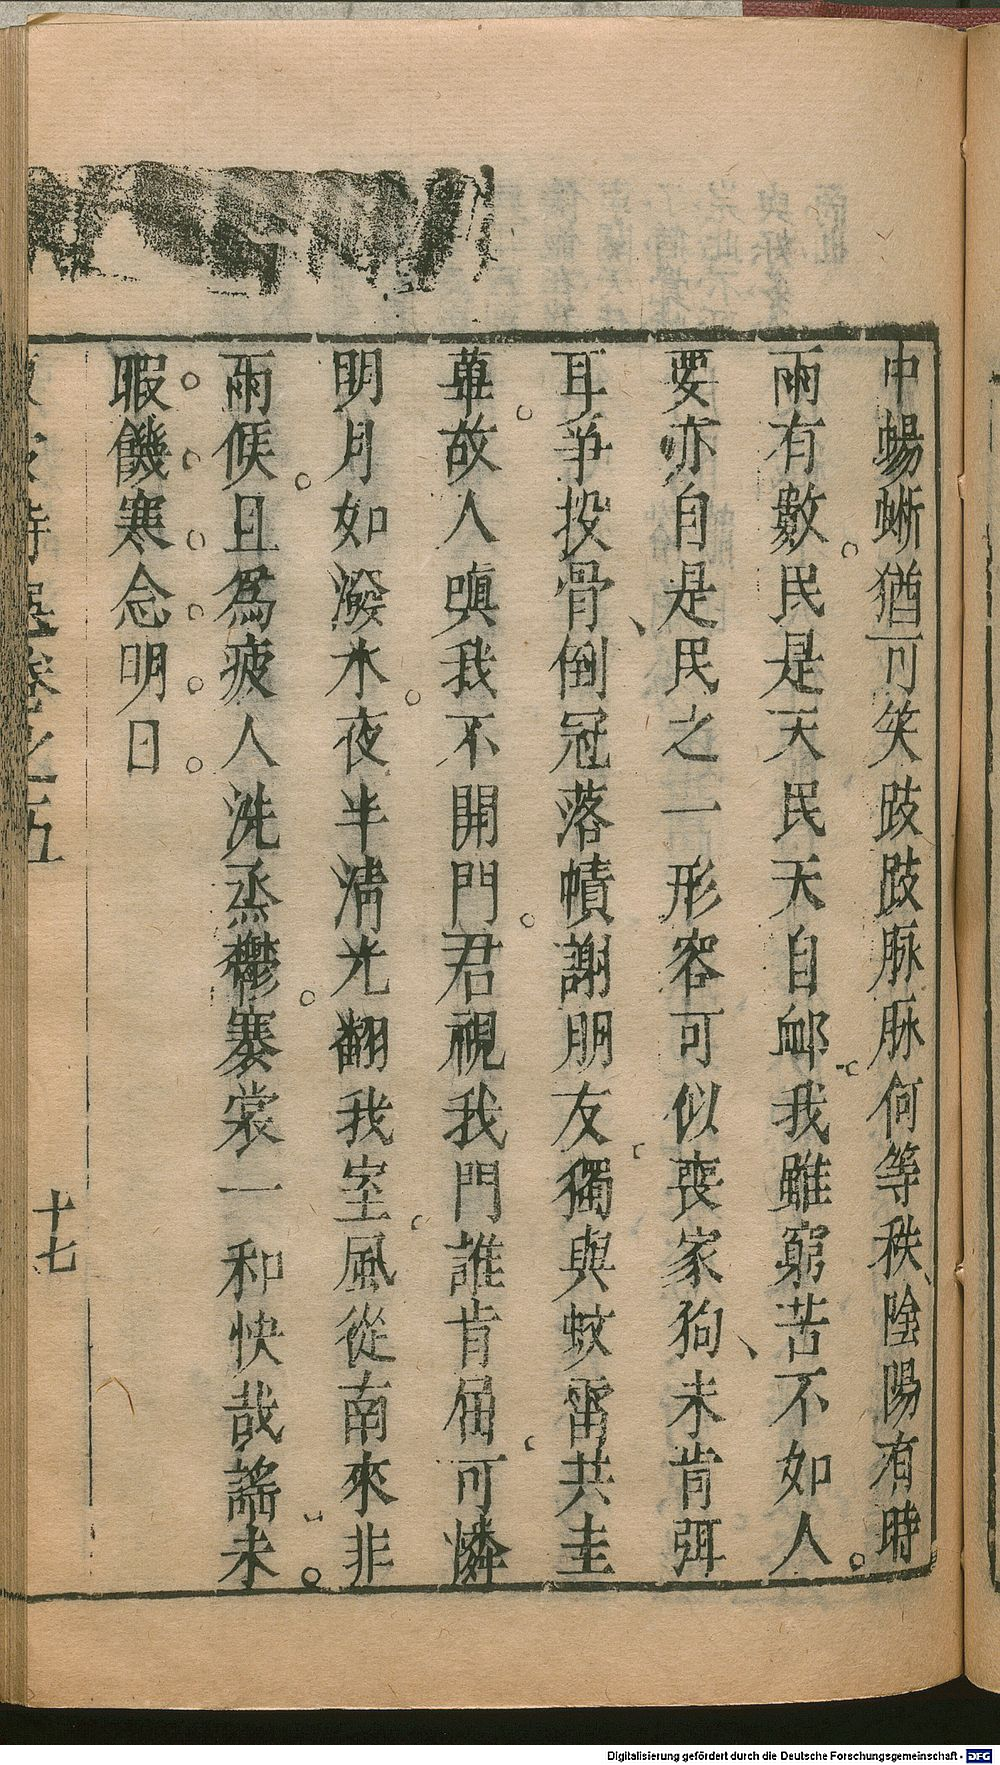 中蜴蜥猶可笑跂跂脉脉何等秩陰陽有時
雨有數民是天民天自䘏我雖窮苦不如人
要亦自是民之一形容可似喪家狗未肯弭
耳爭投骨倒冠落幘謝朋友獨與蚊雷共圭
蓽故人嗔我不開門君視我門誰肯屈可憐
明月如潑水夜半清光翻我室風從南來非
雨候且爲疲人洗烝鬱褰裳一和快哉謠未
暇饑寒念明日
卷之五
十七
Digitalisierung gefördert durch die Deutsche Forschungsgemeinschaft - DFG